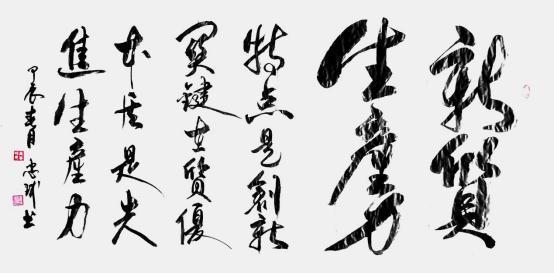 新質
生產力
特点是創新
關鍵在質優
本质是先
進生產力
甲辰春月 书